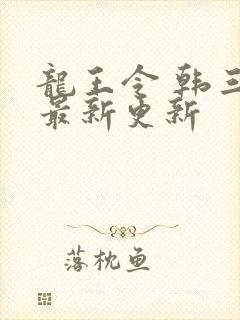 龍王令 韩三
最新更新
落枕鱼